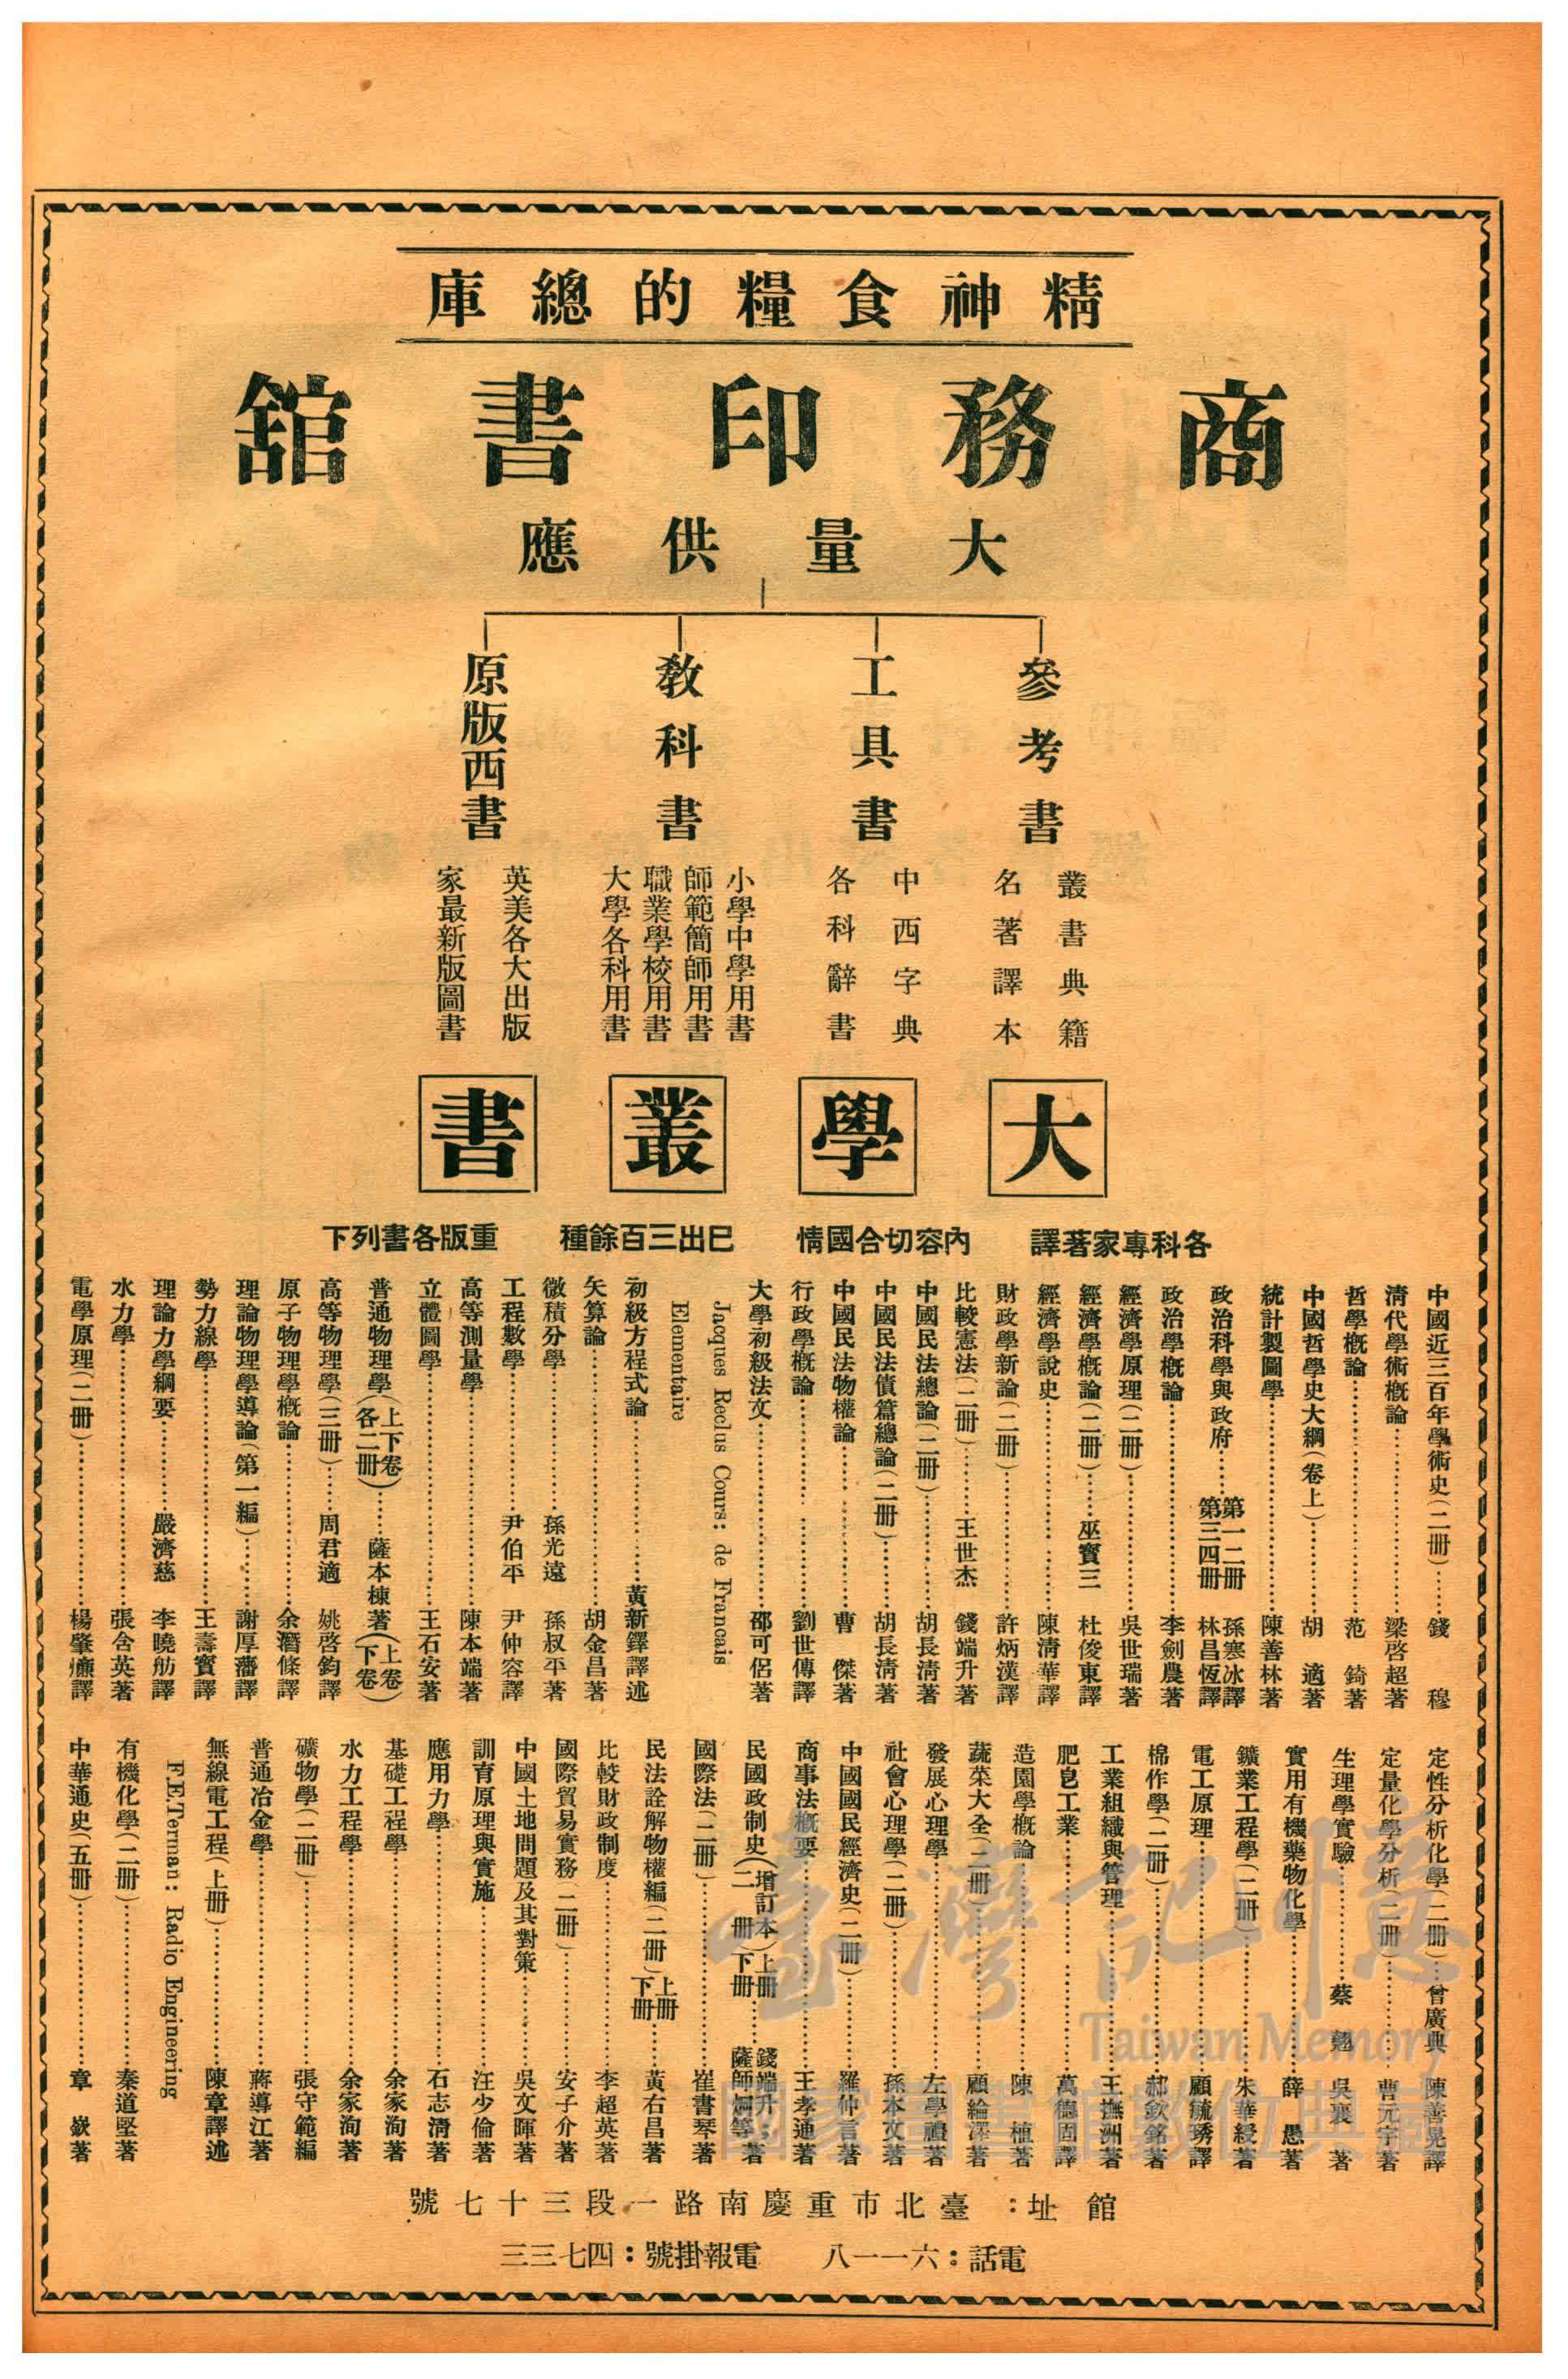 精神食糧的總庫
商務印書舘
大量供應
參考書
叢書典籍
名著譯本
工具書
中西字典
各科辭書
教科書
小學中學用書
師範簡師用書
職業學校用書
大學各科用書
原版西書
英美各大出版
家最新版圖書
大學叢書
各科專家著譯 內容切合國情 已出三百餘種 重版各書列下
中國近三百年學術史(二冊)……錢 穆
清代學術概論……梁啓超著
哲學概論……范 錡著
中國哲學史大綱(卷上)……胡 適著
統計製圖學……陳善林著
政治科學與政府……第一二冊 孫寒冰譯
第三四冊 林昌恆譯
政治學概論……李劍農著
經濟學原理(二冊)……吳世瑞著
經濟學概論(二冊)……巫寶三 杜俊東譯
經濟學說史……陳清華譯
財政學新論(二冊)……許炳漢譯
比較憲法(二冊)……王世杰 錢端升著
中國民法總論(二冊)……胡長清著
中國民法債篇總論(二冊)……胡長清著
中國民法物權論……曹 傑著
行政學概論……劉世傳譯
大學初級法文……邵可侶著
Jacques Reclus Cours: de Francais
Elementaire
初級方程式論……黃新鐸譯述
矢算論……胡金昌著
微積分學……孫光遠 孫叔平著
工程數學……尹伯平 尹仲容譯
高等測量學……陳本端著
立體圖學……王石安著
普通物理學(上下卷 各二冊)……薩本棟著(上卷)(下卷)
高等物理學(三冊)……周君適 姚啓鈞譯
原子物理學概論……余潛修譯
理論物理學導論(第一編)……謝厚藩譯
勢力線學……王壽寶譯
理論力學綱要……嚴濟慈 李曉舫譯
水力學……張含英著
電學原理(二冊)……楊肇燫譯
定性分析化學(二冊)……曾廣典 陳善晃譯
定量化學分析(二冊)……曹元宇著
生理學實驗……蔡 翹 吳襄 著
實用有機藥物化學……薛 愚著
鑛業工程學(二冊)……朱華綬著
電工原理……顧毓琇譯
棉作學(二冊)……郝欽銘著
工業組織與管理……王撫洲著
肥皂工業……萬德固譯
造園學概論……陳 植著
蔬菜大全(二冊)……顧綸澤著
發展心理學……左學禮著
社會心理學(二冊)……孫本文著
中國國民經濟史(二冊)……羅仲言著
商事法概要……王孝通著
民國政制史(增訂本 二冊)上冊 下冊……錢端升 薩師炯等著
國際法(二冊)……崔書琴著
民法詮解物權編(二冊)上冊 下冊……黃右昌著
比較財政制度……李超英著
國際貿易實務(二冊)……安子介著
中國土地問題及其對策……吳文暉著
訓育原理與實施……汪少倫著
應用力學……石志清著
基礎工程學……余家洵著
水力工程學……余家洵著
礦物學(二冊)……張守範編
普通冶金學……蔣導江著
無線電工程(上冊)……陳章譯述
F.E.Terman: Radio Engineering
有機化學(二冊)……秦道堅著
中華通史(五冊)……章 嶔著
館址:臺北市重慶南路一段三十七號
電話:六一一八 電報掛號:四七三三
臺灣記憶
Taiwan Memory
國家圖書館數位典藏